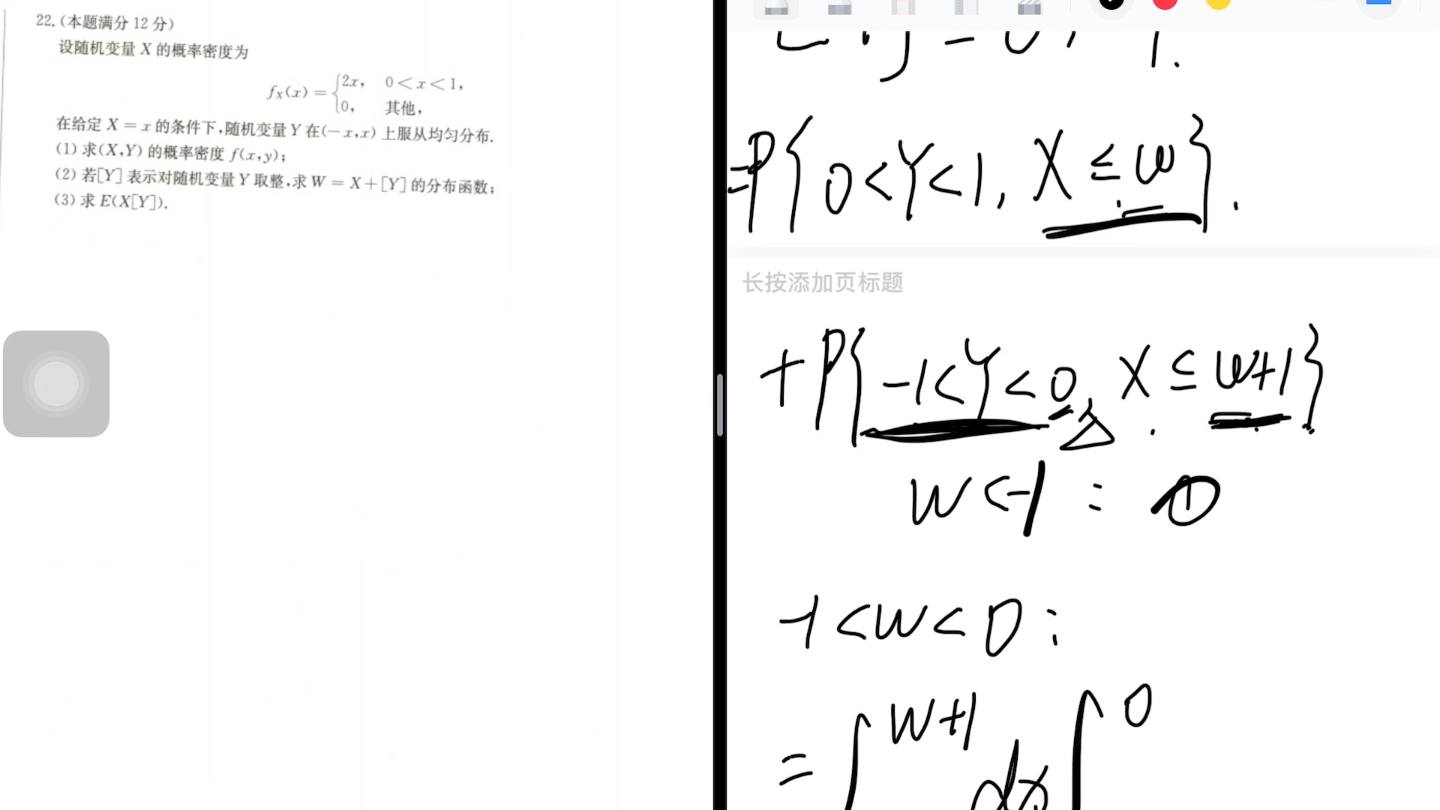 22.(本题满分 12 分)
设随机变量 X 的概率密度为
fX(x) = {2x, 0 < x < 1,
0, 其他,
在给定 X = x 的条件下,随机变量 Y 在(-x,x) 上服从均匀分布.
(1) 求(X,Y) 的概率密度 f(x,y);
(2) 若[Y] 表示对随机变量 Y 取整,求 W = X + [Y] 的分布函数;
(3) 求 E(X[Y]).
=P{0<Y<1, X≤w}.
长按添加页标题
+P{-1<Y<0, X≤w+1}
w<-1: 0
-1<w<0:
=∫ w+1 dx ∫ 0